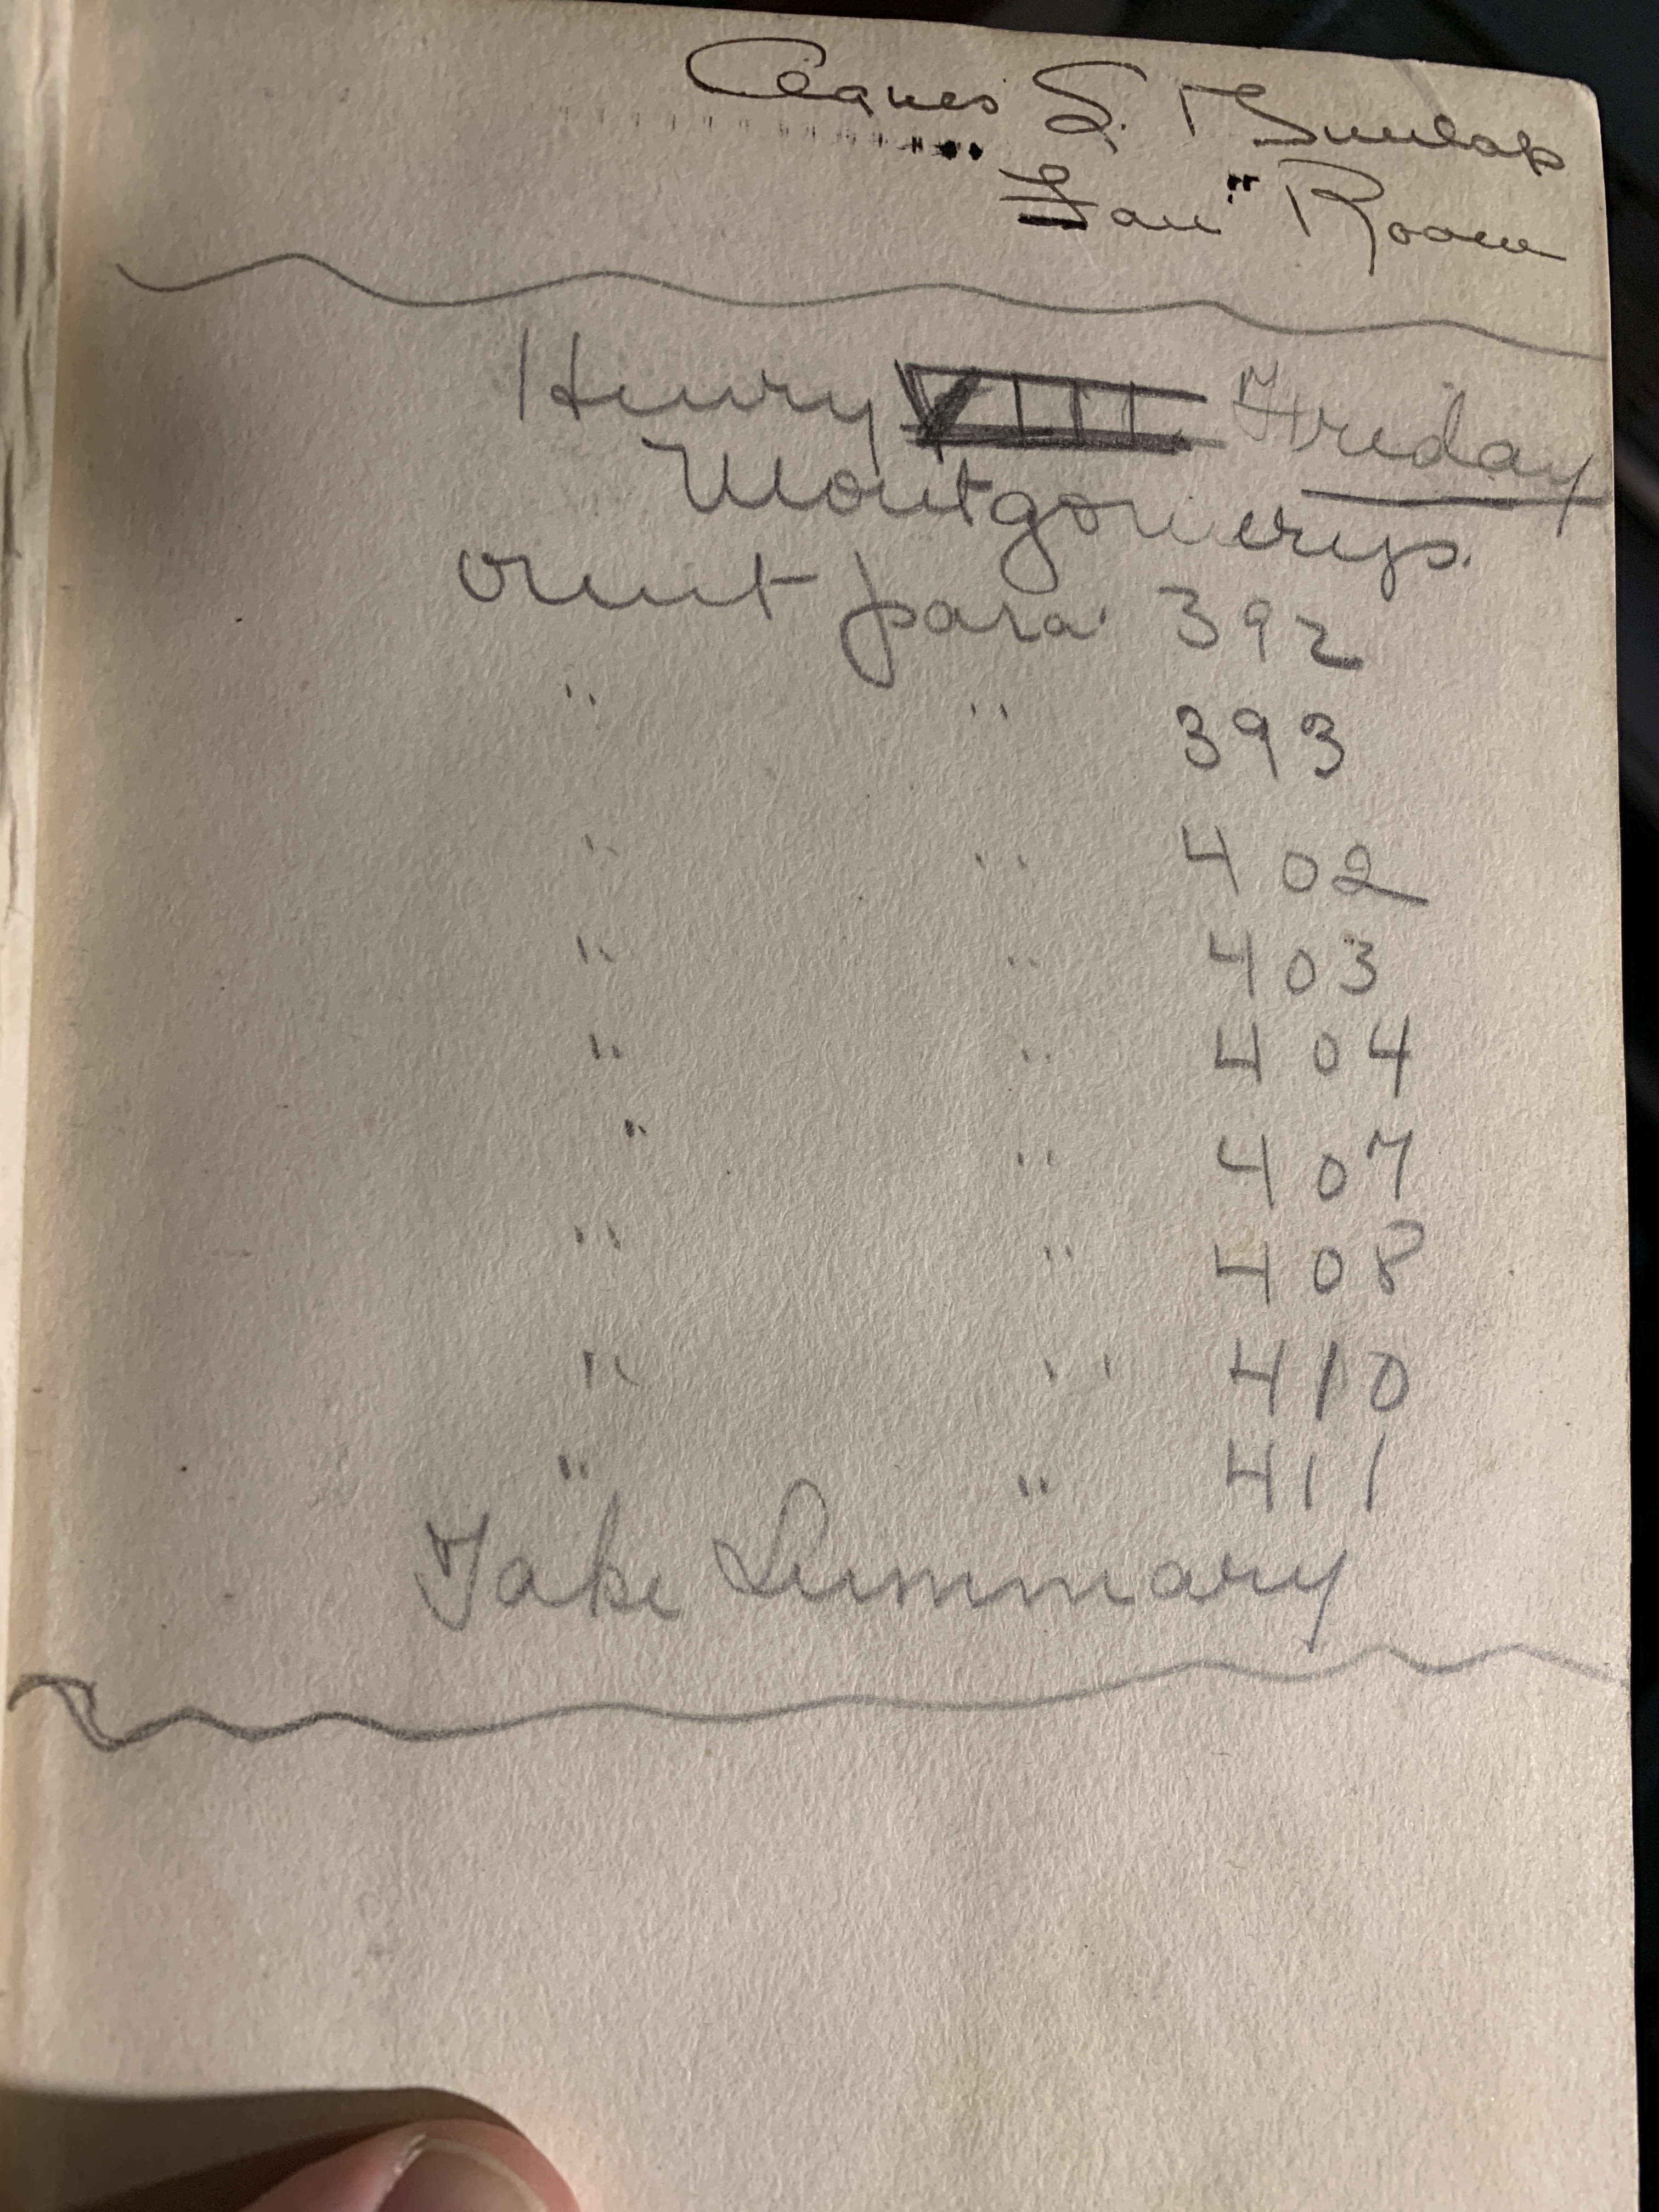 Agnes S. Dunlap
"F" Room
Henry VIII. Friday
Montgomerys.
omit para 392
" " 393
" " 402
" " 403
" " 404
" " 407
" " 408
" " 410
" " 411
Take Summary